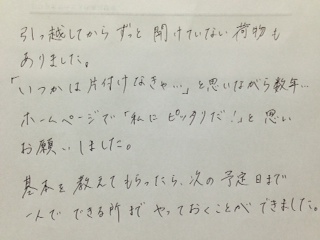 引っ越してからずっと開けていない荷物も
ありました。
「いつかは片付けなきゃ…」と思いながら数年…
ホームページで「私にピッタリだ！」と思い
お願いしました。
基本を教えてもらったら、次の予定日まで
一人でできる所までやっておくことができました。